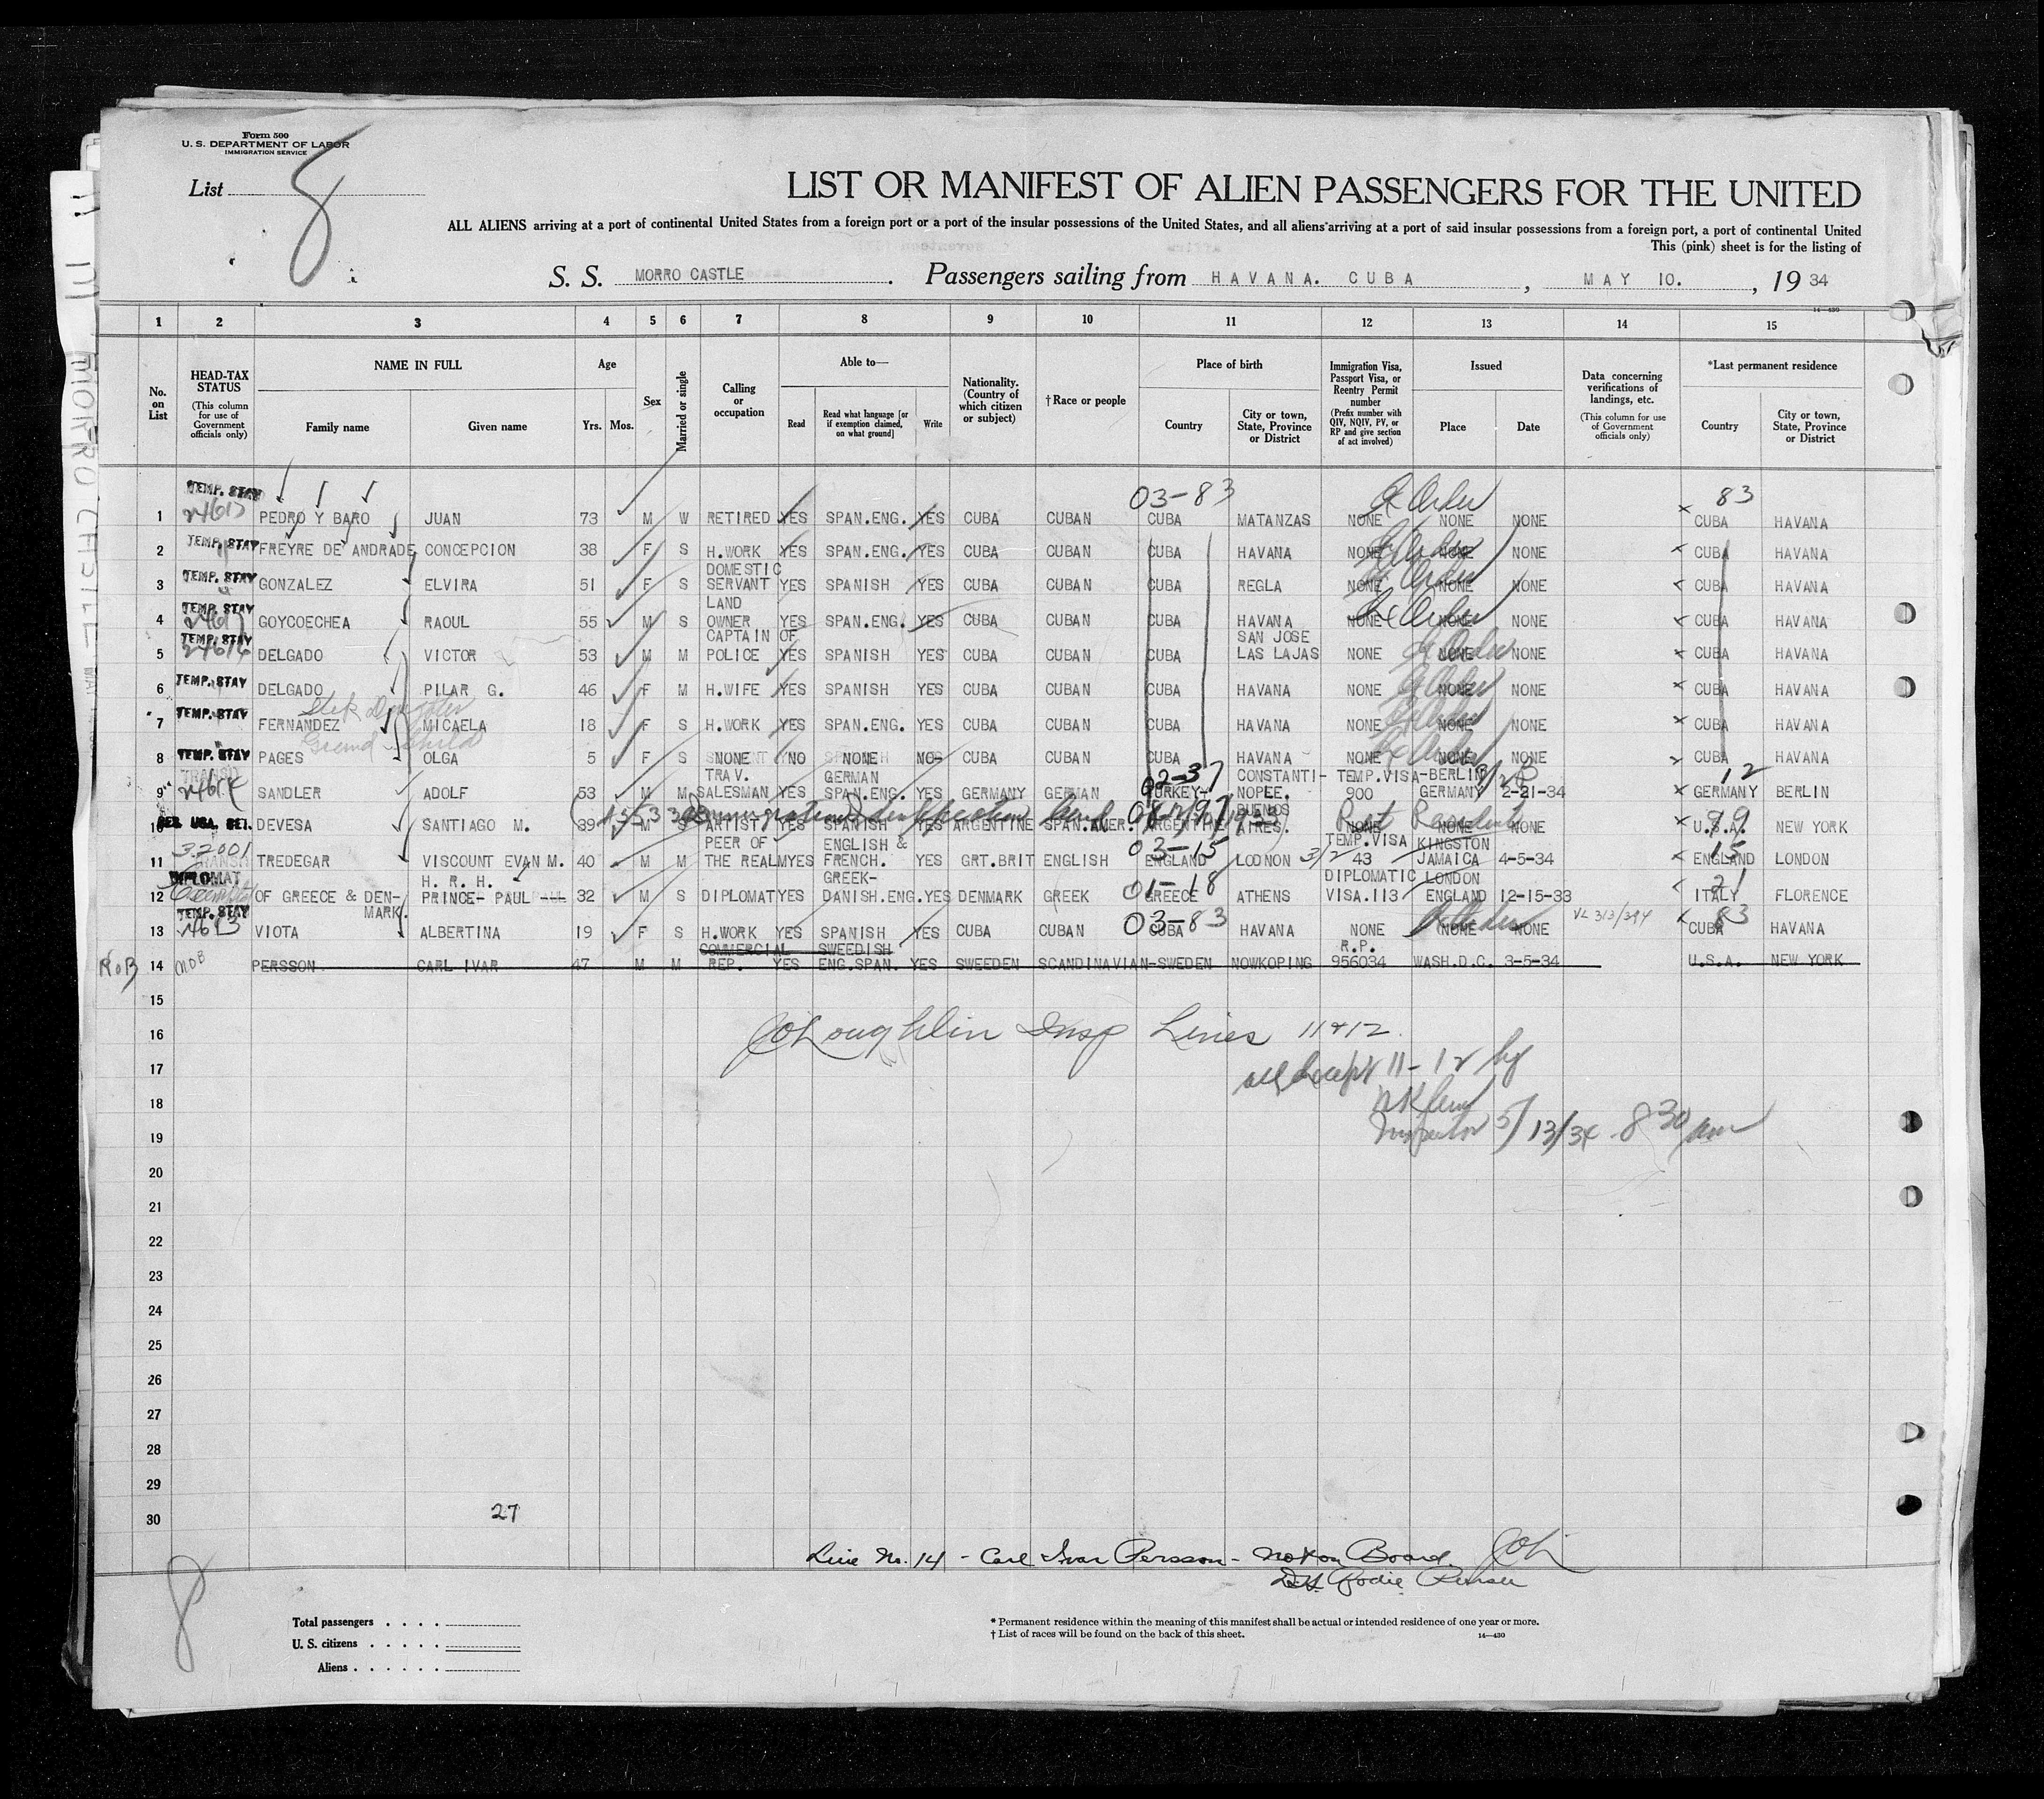 Form 500
U. S. DEPARTMENT OF LABOR
IMMIGRATION SERVICE
List 8
LIST OR MANIFEST OF ALIEN PASSENGERS FOR THE UNITED
ALL ALIENS arriving at a port of continental United States from a foreign port or a port of the insular possessions of the United States, and all aliens arriving at a port of said insular possessions from a foreign port, a port of continental United
This (pink) sheet is for the listing of
S. S. MORRO CASTLE. Passengers sailing from HAVANA. CUBA, MAY 10., 19 34
14-430
1 2 3 4 5 6 7 8 9 10 11 12 13 14 15
No. on List
HEAD-TAX STATUS (This column for use of Government officials only)
NAME IN FULL
Family name Given name
Age
Yrs. Mos.
Sex
Married or single
Calling or occupation
Able to—
Read
Read what language [or if exemption claimed, on what ground]
Write
Nationality. (Country of which citizen or subject)
† Race or people
Place of birth
Country
City or town, State, Province or District
Immigration Visa, Passport Visa, or Reentry Permit number (Prefix number with QIV, NQIV, PV, or RP and give section of act involved)
Issued
Place Date
Data concerning verifications of landings, etc. (This column for use of Government officials only)
*Last permanent residence
Country
City or town, State, Province or District
TEMP. STAY 03-83 83
1 PEDRO Y BARO JUAN 73 M W RETIRED YES SPAN.ENG. YES CUBA CUBAN CUBA MATANZAS NONE NONE NONE CUBA HAVANA
2 TEMP. STAY FREYRE DE ANDRADE CONCEPCION 38 F S H.WORK YES SPAN.ENG. YES CUBA CUBAN CUBA HAVANA NONE NONE NONE CUBA HAVANA
3 TEMP. STAY GONZALEZ ELVIRA 51 F S DOMESTIC SERVANT YES SPANISH YES CUBA CUBAN CUBA REGLA NONE NONE NONE CUBA HAVANA
4 TEMP. STAY GOYCOECHEA RAOUL 55 M S LAND OWNER YES SPAN.ENG. YES CUBA CUBAN CUBA HAVANA NONE NONE NONE CUBA HAVANA
5 TEMP. STAY DELGADO VICTOR 53 M M CAPTAIN OF POLICE YES SPANISH YES CUBA CUBAN CUBA SAN JOSE LAS LAJAS NONE NONE NONE CUBA HAVANA
6 TEMP. STAY DELGADO PILAR G. 46 F M H.WIFE YES SPANISH YES CUBA CUBAN CUBA HAVANA NONE NONE NONE CUBA HAVANA
Step Daughter
7 TEMP. STAY FERNANDEZ MICAELA 18 F S H.WORK YES SPAN.ENG. YES CUBA CUBAN CUBA HAVANA NONE NONE NONE CUBA HAVANA
Grand child
8 TEMP. STAY PAGES OLGA 5 F S NONE NO NONE NO CUBA CUBAN CUBA HAVANA NONE NONE NONE CUBA HAVANA
TRANSIT 02-37 12
9 SANDLER ADOLF 53 M M TRAV. SALESMAN YES GERMAN SPAN.ENG. YES GERMANY GERMAN TURKEY- CONSTANTI-NOPLE. TEMP.VISA 900 BERLIN GERMANY 2-21-34 GERMANY BERLIN
Immigration Identification Card 99
10 DEVESA SANTIAGO M. 39 M S ARTIST YES SPANISH YES ARGENTINE SPAN.AMER. ARGENTINE BUENOS AIRES. NONE NONE NONE U.S.A. NEW YORK
32001 03-15 15
11 TRANSIT TREDEGAR VISCOUNT EVAN M. 40 M M PEER OF THE REALM YES ENGLISH & FRENCH. YES GRT.BRIT ENGLISH ENGLAND LODNON TEMP.VISA 43 KINGSTON JAMAICA 4-5-34 ENGLAND LONDON
DIPLOMAT 01-18 21
12 OF GREECE & DEN-MARK. H. R. H. PRINCE- PAUL 32 M S DIPLOMAT YES GREEK- DANISH.ENG. YES DENMARK GREEK GREECE ATHENS DIPLOMATIC VISA.113 LONDON ENGLAND 12-15-33 ITALY FLORENCE
TEMP. STAY 03-83 83
13 VIOTA ALBERTINA 19 F S H.WORK YES SPANISH YES CUBA CUBAN CUBA HAVANA NONE NONE NONE CUBA HAVANA
14 PERSSON CARL IVAR 47 M M COMMERCIAL REP. YES SWEEDISH ENG.SPAN. YES SWEEDEN SCANDINAVIAN-SWEDEN NOWKOPING R.P. 956034 WASH.D.C. 3-5-34 U.S.A. NEW YORK
15
16 JOLoughlin Insp Lines 11 & 12.
17 all except 11-12 by
18
19 Inspector 5/13/34 8 30 am
20
21
22
23
24
25
26
27
28
29
30 27
Line No. 14 - Carl Ivar Persson - Not on Board.
8
Total passengers
U. S. citizens
Aliens
* Permanent residence within the meaning of this manifest shall be actual or intended residence of one year or more.
† List of races will be found on the back of this sheet.
14-430
MORRO CASTLE